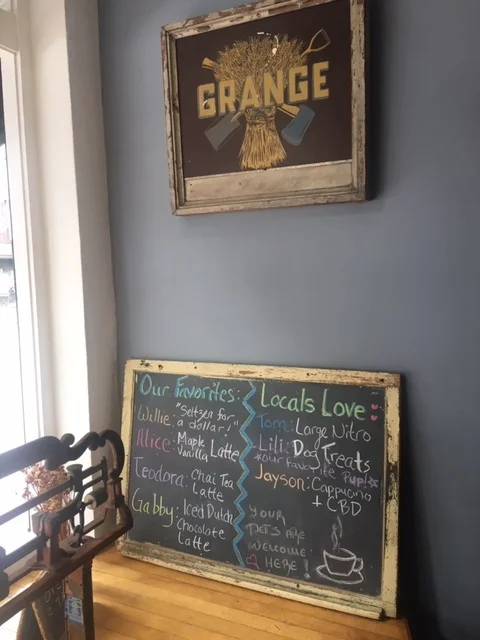 GRANGE
Our Favorites:
Willie: "Seltzer for
a dollar!"
Alice: Maple
Vanilla Latte
Teodora: Chai Tea
Latte
Gabby: Iced Dutch
Chocolate
Latte
Locals Love:
Tom: Large Nitro
Lili: Dog Treats
*our favorite pup!*
Jayson: Cappucino
+ CBD
YOUR
PETS ARE
WELCOME
HERE!